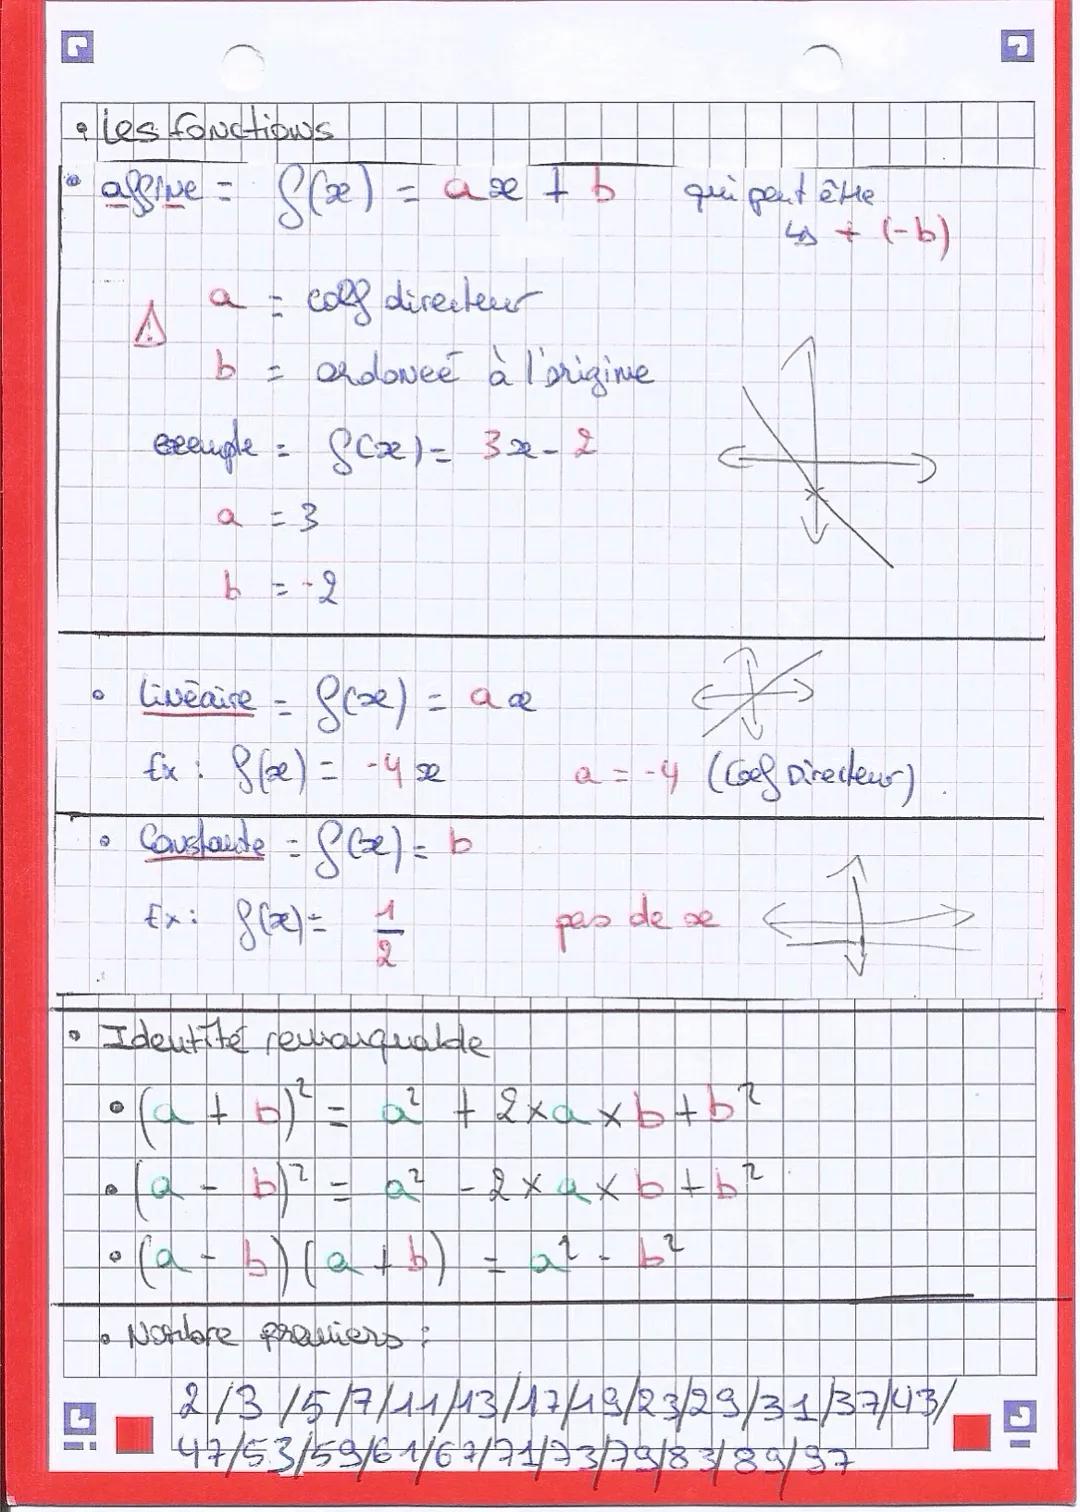 • Les fonctions
• affine = f(x) = ax + b qui peut être
↳ + (-b)
a = coef directeur
b = ordoneé à l'origine
exemple = f(x) = 3x - 2
a = 3
b = -2
• linéaire = f(x) = ax
Ex : f(x) = -4x a = -4 (Coef Directeur)
• Constante = f(x) = b
Ex : f(x) = 1/2 pas de x
• Identité remarquable
• (a + b)² = a² + 2×a×b + b²
• (a - b)² = a² - 2×a×b + b²
• (a - b)(a + b) = a² - b²
• Nombre premiers :
2/3/5/7/11/13/17/19/23/29/31/37/43/
47/53/59/61/67/71/73/79/83/89/97